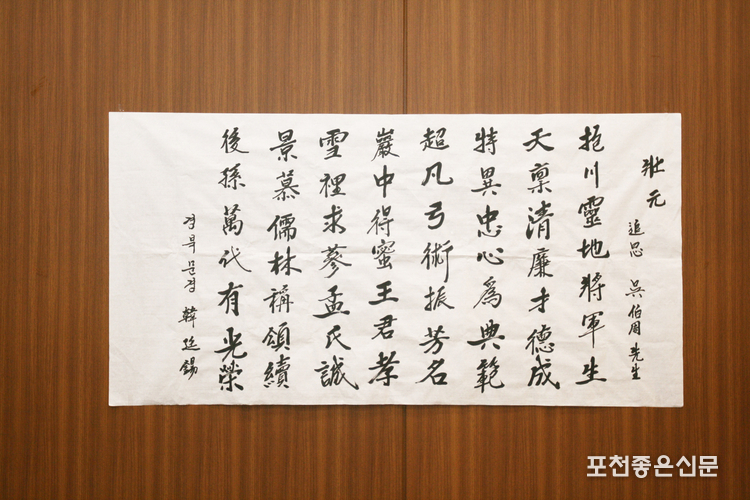 壯元
追思 吳伯周先生
抱川靈地將軍生
天稟清廉才德成
特異忠心爲典範
超凡弓術振芳名
巖中得蜜王君孝
雪裡求蔘孟氏誠
景慕儒林稱頌續
後孫萬代有光榮
경북문경 韓廷錫
포천좋은신문